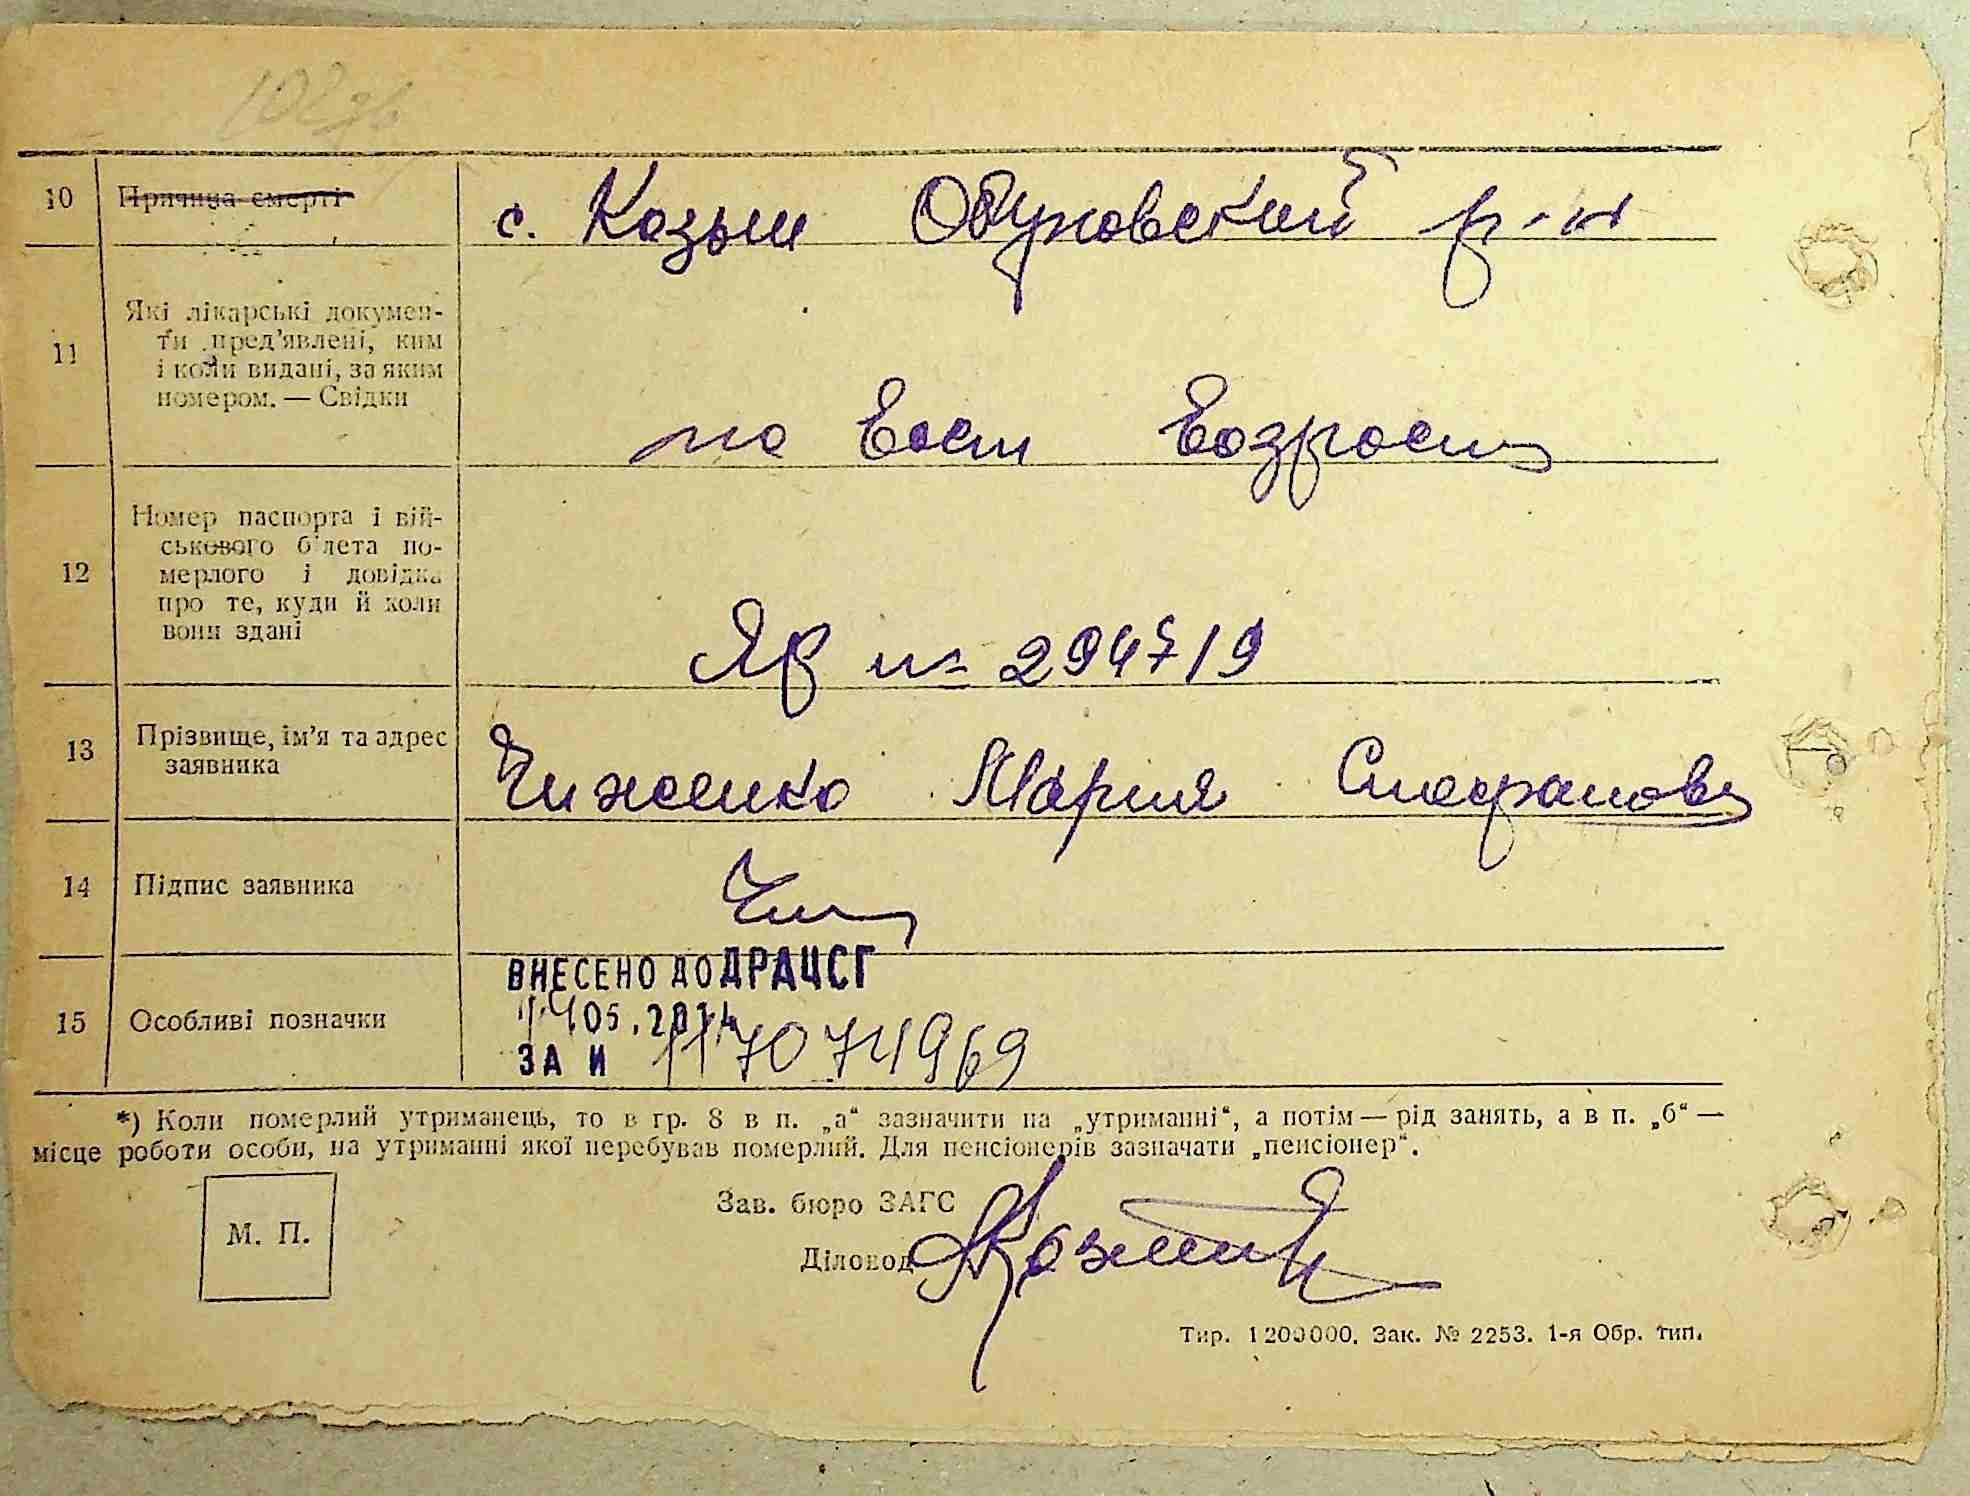 10 Причина смерті с. Козын Обуховский р-н
11 Які лікарські докумен-
ти пред'явлені, ким
і коли видані, за яким
номером. — Свідки
по восст возрасту
12 Номер паспорта і вій-
ськового білета по-
мерлого і довідка
про те, куди й коли
вони здані
Яв № 294719
13 Прізвище, ім'я та адрес
заявника
Чиженко Мария Стефановн
14 Підпис заявника
15 Особливі позначки
ВНЕСЕНО ДО ДРАЦСГ
14.05.2014
ЗА И 117074969
*) Коли померлий утриманець, то в гр. 8 в п. „а“ зазначити на „утриманні“, а потім — рід занять, а в п. „б“ —
місце роботи особи, на утриманні якої перебував померлий. Для пенсіонерів зазначати „пенсіонер“.
М. П.
Зав. бюро ЗАГС
Діловод
Тир. 1200000. Зак. № 2253. 1-я Обр. тип.